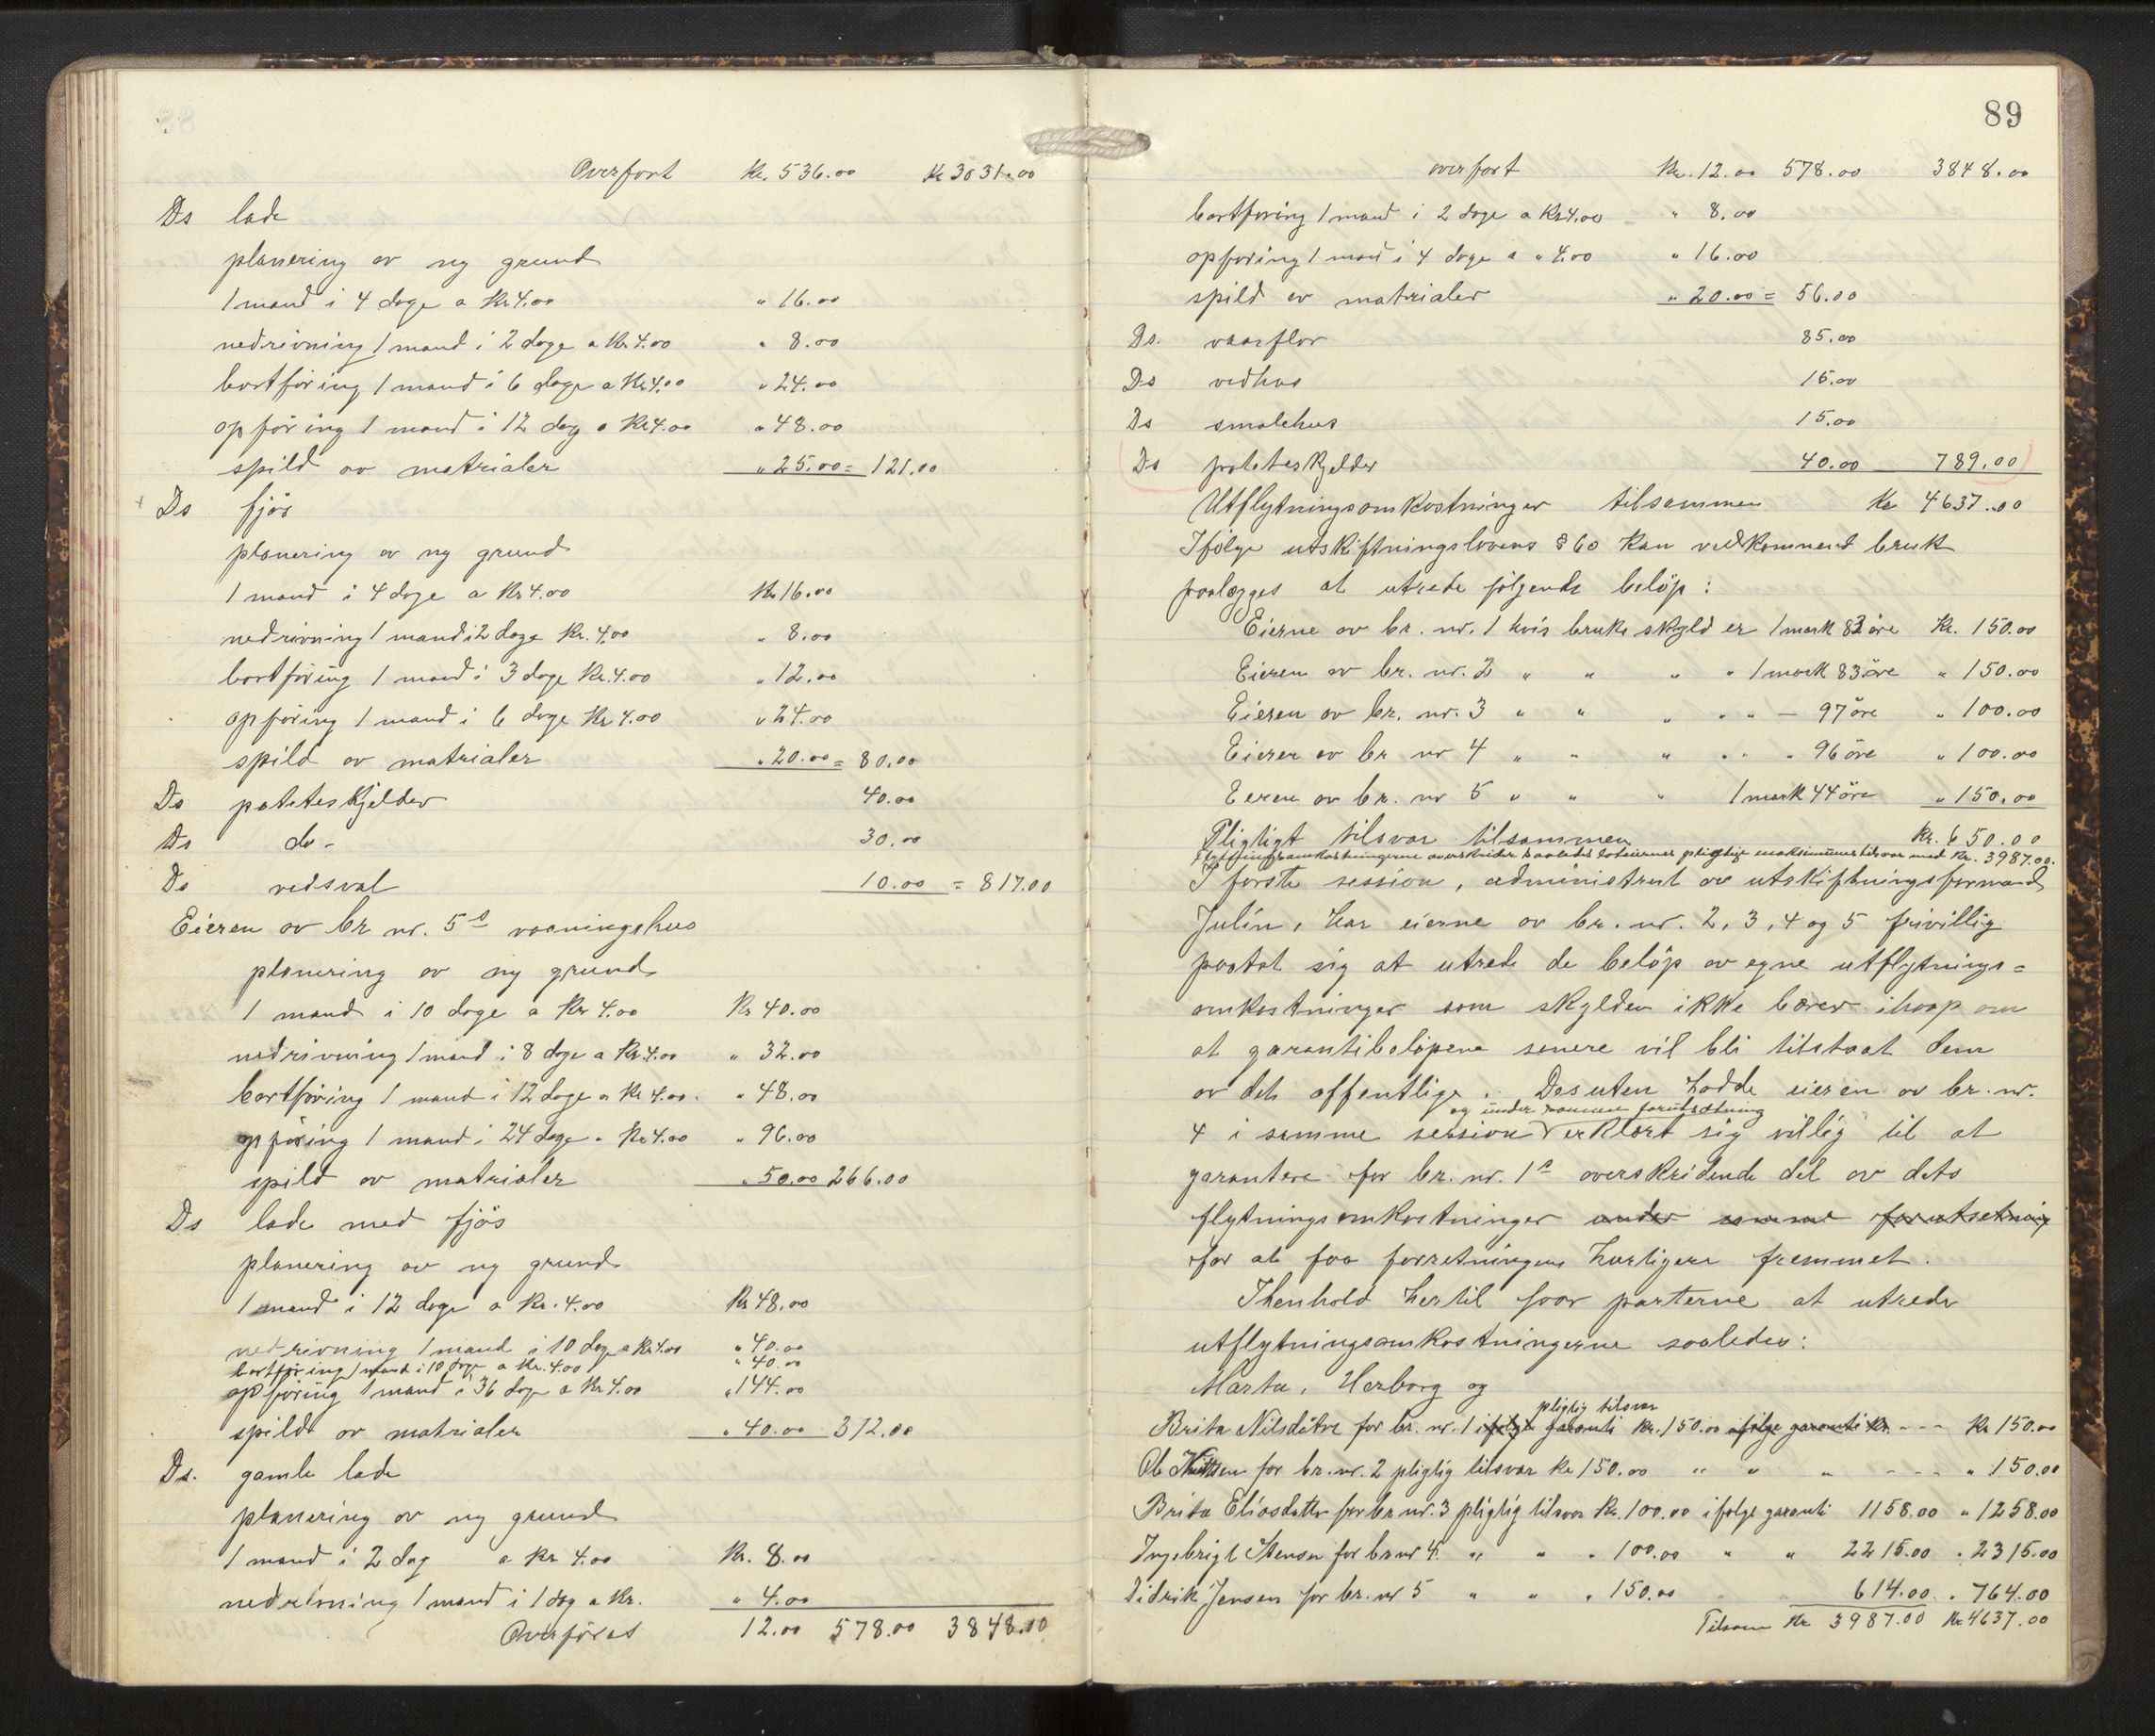 Overført Kr. 536.00 Kr 3031.00
Ds lade
planering av ny grund
1 mand i 4 dage a Kr 4.00 " 16.00
nedrivning 1 mand i 2 dage a Kr. 4.00 " 8.00
bortföring 1 mand i 6 dage a Kr 4.00 " 24.00
opföring 1 mand i 12 dag a Kr 4.00 " 48.00
spild av matrialer " 25.00 = 121.00
Ds fjös
planering av ny grund
1 mand i 4 dage a Kr 4.00 Kr. 16.00
nedrivning 1 mand i 2 dage Kr. 4.00 " 8.00
bortföring 1 mand i 3 dage Kr. 4.00 " 12.00
opföring 1 mand i 6 dage Kr 4.00 " 24.00
spild av matrialer " 20.00 = 80.00
Ds poteteskjelder 40.00
Ds do - 30.00
Ds vedsval 10.00 = 817.00
Eieren av br nr. 5s vaaningshus
planering av ny grund
1 mand i 10 dage a Kr 4.00 Kr 40.00
nedrivning 1 mand i 8 dage a Kr. 4.00 " 32.00
bortföring 1 mand i 12 dage a Kr 4.00 " 48.00
opföring 1 mand i 24 dage " Kr 4.00 " 96.00
spild av matrialer " 50.00 266.00
Ds lade med fjös
planering av ny grund
1 mand i 12 dage a Kr. 4.00 Kr 48.00
nedrivning 1 mand i 10 dag a Kr 4.00 " 40.00
bortföring 1 mand i 10 dage a Kr. 4.00 " 40.00
opföring 1 mand i 36 dage a Kr 4.00 " 144.00
spild av matrialer " 40.00 312.00
Ds. gamle lade
planering av ny grund
1 mand i 2 dag a Kr 4.00 Kr. 8.00
nedrivning 1 mand i 1 dag a Kr. " 4.00
Overföres 12.00 578.00 3848.00
89
overført Kr. 12.00 578.00 3848.00
bortföring 1 mand i 2 dage a Kr 4.00 " 8.00
opføring 1 mand i 4 dage a " 4.00 " 16.00
spild av matrialer " 20.00 = 56.00
Ds. vaarflor 85.00
Ds vedhus 15.00
Ds smalehus 15.00
Ds poteteskjelder 40.00 789.00
Utflytningsomkostninger tilsammen Kr 4637.00
Ifølge utskiftningslovens § 60 kan vedkommend bruk
paalægges at utrede følgende beløp:
Eierne av br. nr. 1 hvis bruks skyld er 1 mark 83 øre Kr. 150.00
Eieren av br. nr. 2 " " " " 1 mark 83 øre " 150.00
Eieren av br. nr. 3 " " " " " — 97 øre " 100.00
Eieren av br nr 4 " " " " " " 96 øre " 100.00
Eieren av br. nr 5 " " " 1 mark 44 öre " 150.00
Pligtigt tilsvar tilsammen Kr. 650.00
Flytningsomkostningerne overskrider saaledes loteiernes pligtige maksimumstilsvar med Kr. 3987.00.
I første session, administrert av utskiftningsformand
Julin, har eierne av br. nr. 2, 3, 4 og 5 frivillig
paatat sig at utrede de beløp av egne utflytnings=
omkostninger som skylden ikke bærer ihaap om
at garantibeløpene senere vil bli tilstaat dem
av det offentlige. Desuten hadde eieren av br. nr.
og under samme forutsetning
4 i samme session erklært sig villig til at
garantere for br. nr. 1s overskridende del av dets
flytningsomkostninger under samme forutsetning
for at faa forretningen hurtigere fremmet.
I henhold hertil faar parterne at utrede
utflytningsomkostningerne saaledes:
Marta, Herborg og
pligtig tilsvar
Brita Nilsdøtre for br. nr. 1 ifølge garanti Kr. 150.00 ifølge garanti Kr. - - - Kr 150.00
Ole for br. nr. 2 pligtig tilsvar Kr 150.00 " " " - - - " 150.00
Brita Eliasdatter for br nr. 3 pligtig tilsvar Kr. 100.00 ifølge garanti 1158.00 " 1258.00
Ingebrigt for br nr 4. " " " 100.00 " " 2215.00 " 2315.00
Didrik Jensen for br. nr 5 " " " 150.00 614.00 " 764.00
Tilsam Kr 3987.00 Kr 4637.00